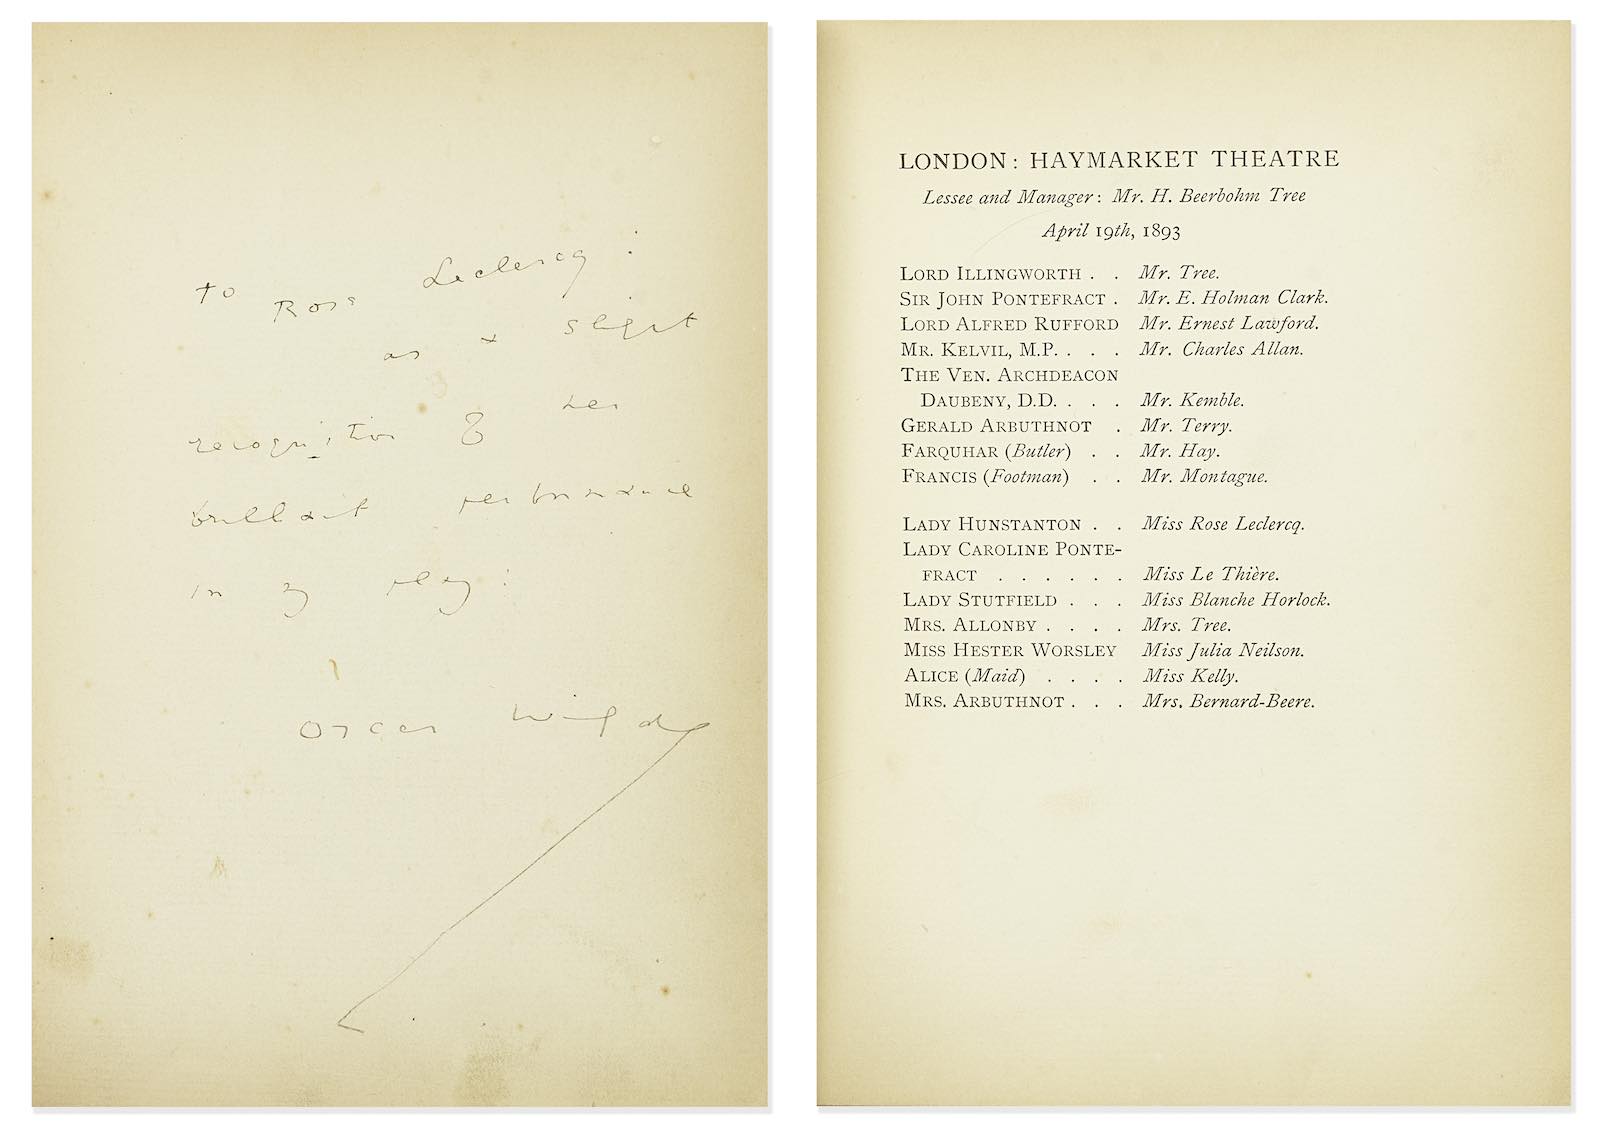 To Rose Leclercq:
as a slight
recognition of her
brilliant performance
in my play:
Oscar Wilde
LONDON: HAYMARKET THEATRE
Lessee and Manager: Mr. H. Beerbohm Tree
April 19th, 1893
LORD ILLINGWORTH . . Mr. Tree.
SIR JOHN PONTEFRACT . Mr. E. Holman Clark.
LORD ALFRED RUFFORD Mr. Ernest Lawford.
MR. KELVIL, M.P. . . . Mr. Charles Allan.
THE VEN. ARCHDEACON
DAUBENY, D.D. . . . Mr. Kemble.
GERALD ARBUTHNOT . Mr. Terry.
FARQUHAR (Butler) . . Mr. Hay.
FRANCIS (Footman) . . Mr. Montague.
LADY HUNSTANTON . . Miss Rose Leclercq.
LADY CAROLINE PONTE-
FRACT . . . . . . Miss Le Thière.
LADY STUTFIELD . . . Miss Blanche Horlock.
MRS. ALLONBY . . . . Mrs. Tree.
MISS HESTER WORSLEY Miss Julia Neilson.
ALICE (Maid) . . . . Miss Kelly.
MRS. ARBUTHNOT . . . Mrs. Bernard-Beere.